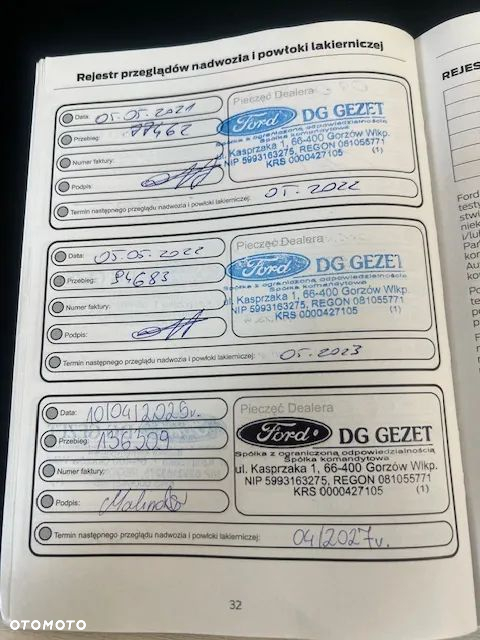 Rejestr przeglądów nadwozia i powłoki lakierniczej
Data: 05.05.2021
Przebieg: 77462
Numer faktury:
Podpis:
Pieczęć Dealera
Ford DG GEZET
Spółka z ograniczoną odpowiedzialnością
Spółka komandytowa
ul. Kasprzaka 1, 66-400 Gorzów Wlkp.
NIP 5993163275, REGON 081055771
KRS 0000427105 (1)
Termin następnego przeglądu nadwozia i powłoki lakierniczej: 05.2022
Data: 05.05.2022
Przebieg: 94683
Numer faktury:
Podpis:
Pieczęć Dealera
Ford DG GEZET
Spółka z ograniczoną odpowiedzialnością
Spółka komandytowa
ul. Kasprzaka 1, 66-400 Gorzów Wlkp.
NIP 5993163275, REGON 081055771
KRS 0000427105 (1)
Termin następnego przeglądu nadwozia i powłoki lakierniczej: 05.2023
Data: 10/04/2025r.
Przebieg: 136309
Numer faktury:
Podpis:
Pieczęć Dealera
Ford DG GEZET
Spółka z ograniczoną odpowiedzialnością
Spółka komandytowa
ul. Kasprzaka 1, 66-400 Gorzów Wlkp.
NIP 5993163275, REGON 081055771
KRS 0000427105 (1)
Termin następnego przeglądu nadwozia i powłoki lakierniczej: 04/2027r.
32
REJES
Ford
OTOMOTO